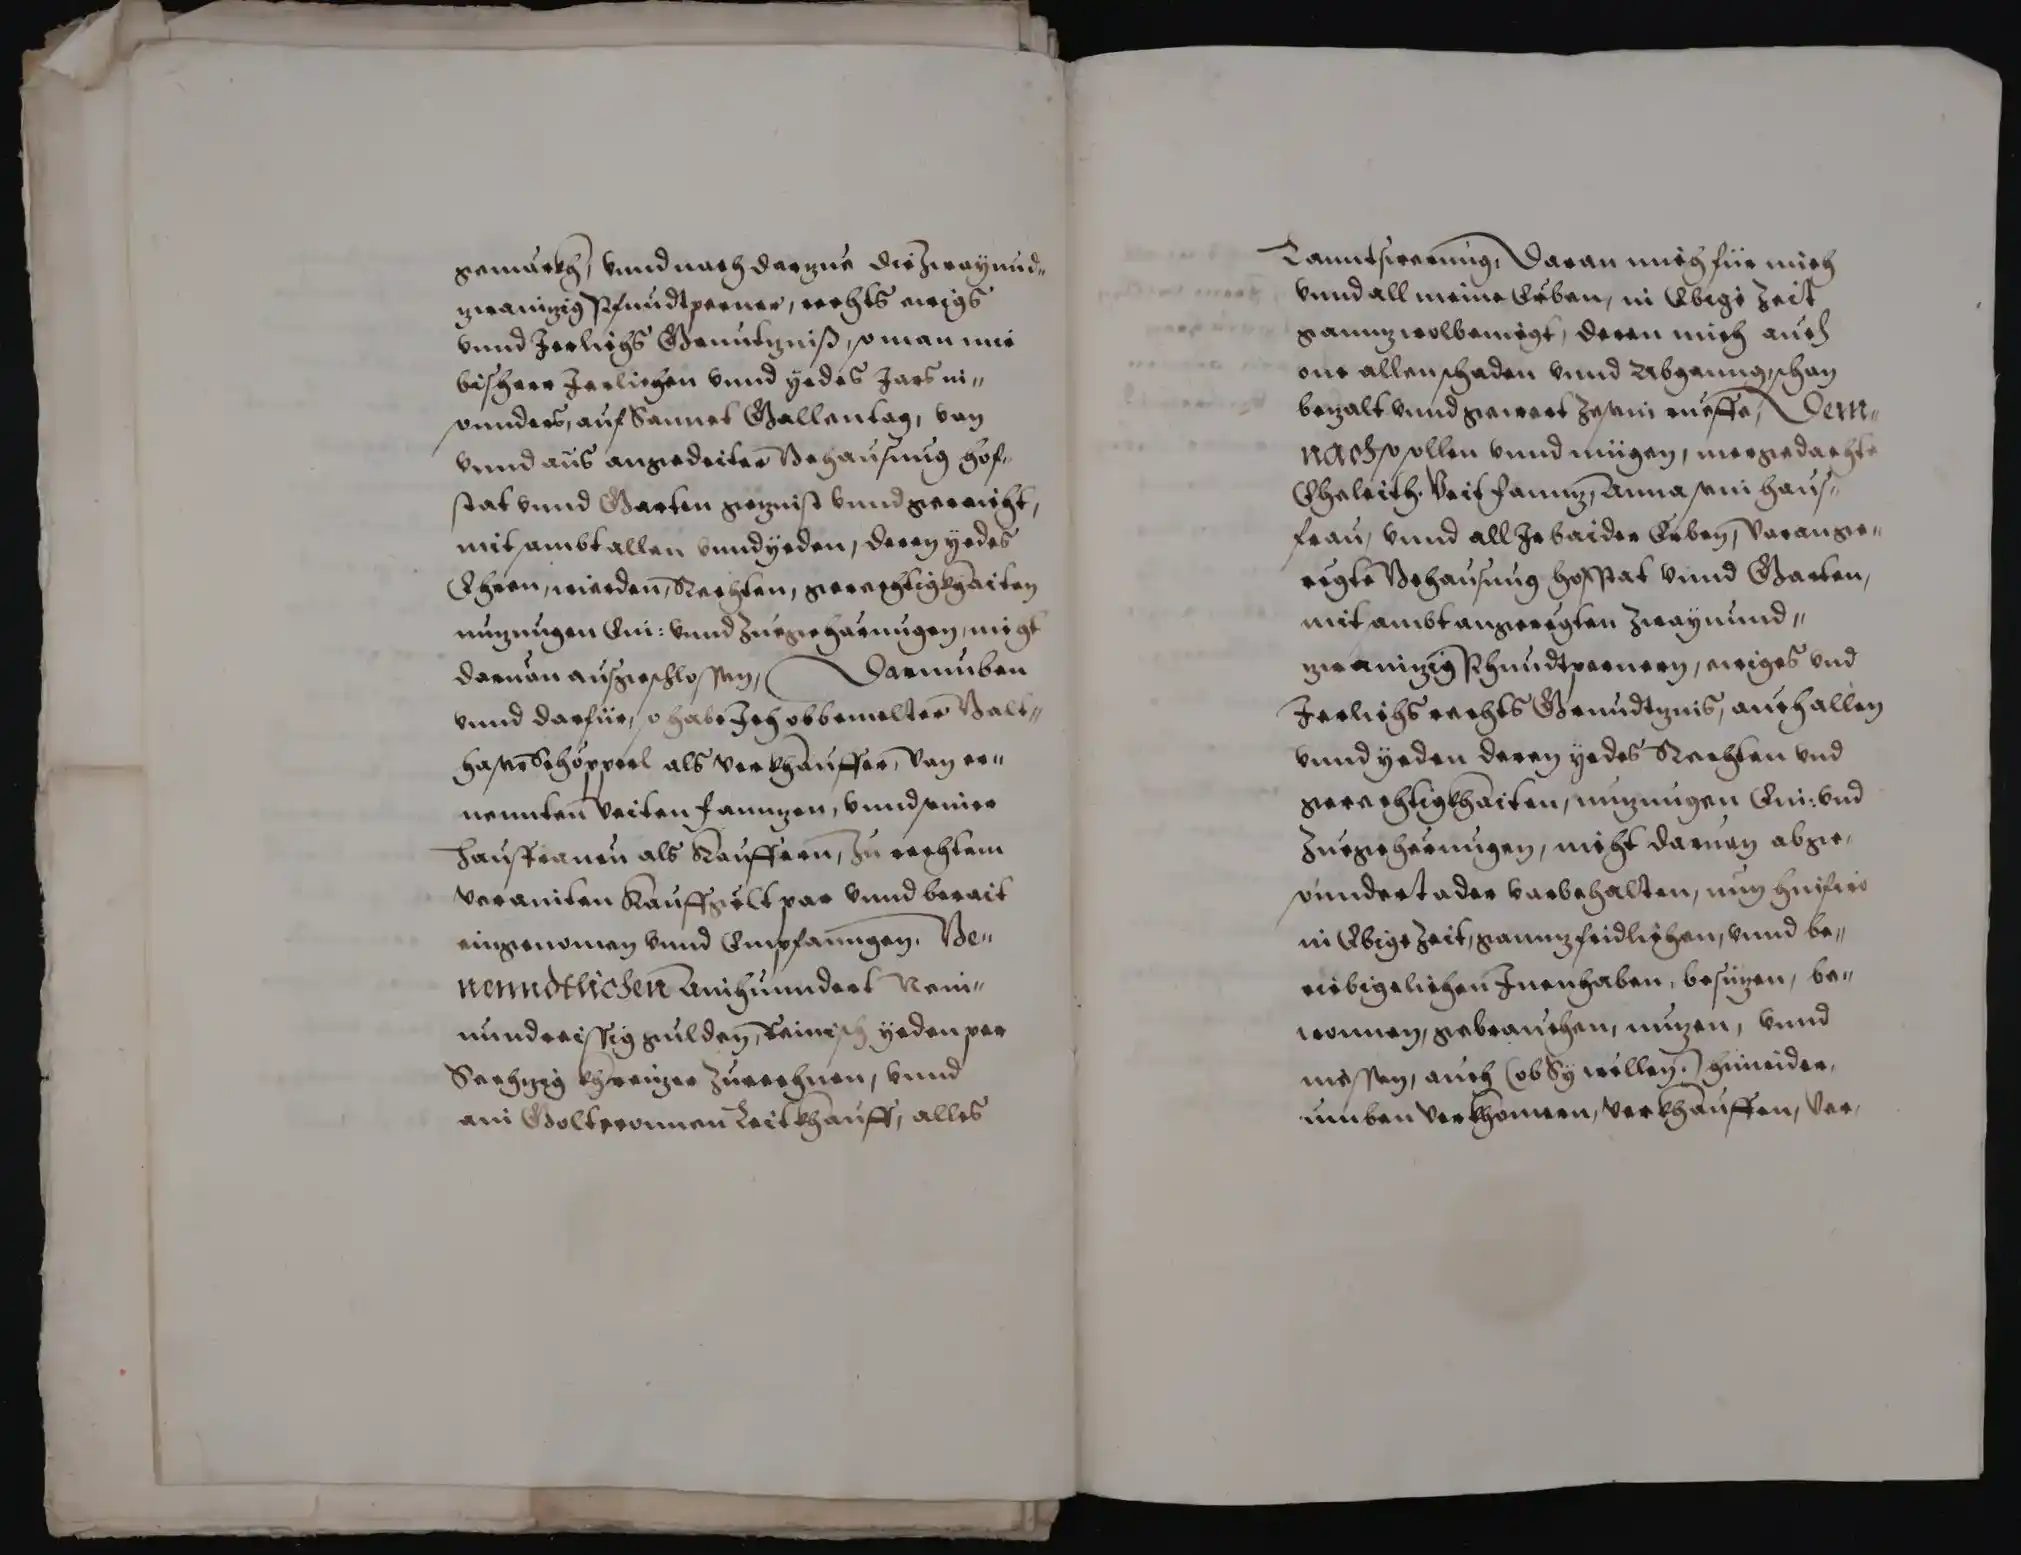 gemärkh, vnnd nach darzue die Zwaÿund„
zwainzig Pfundtperner, rechts ewigs
vnnd Jerlichs Gruntzinß, so man mir
bisheer Jerlichen vnnd ÿedes Jars in„
sonnders, auf Sannct Gallentag, von
vnnd aus angedeiter Behausung Hof„
stat vnnd Garten gezinst vnnd gereicht,
mit sambt allen vnnd ÿeden, deren ÿedes
Ehren, wierden, Rechten, gerechtigkhaiten
nuzungen Ein: vnnd Zuegeherungen, nicht
daruon ausgeschlossen, Darumben
vnnd darfür, so habe Ich obbemelter Balt„
haser Schöpperl als Verkhauffer, Von er„
nennten Veiten Fannzen, vnnd seiner
Hausfrauen als Kauffern, Zu rechtem
Verainten Kauffgelt par vnnd berait
eingenomen vnnd Empfanngen. Be„
nenndtlichen Ainhunndert Nein„
unndreissig gulden, Reinisch yeden per
Sechzig khreuzer Zurechnen, vnnd
ain Goltcronnen Leitkhauff, alles
Lanndtswerung, Daran mich für mich
vnnd all meine Erben, in Ebige Zeit
gannz wolbeniegt, deren mich auch
one allen schaden vnnd Abganng, schon
bezalt vnnd gewert Zesein rueffe, Dem„
nach sollen vnnd mügen, mergedachte
Eheleith. Veit Fannz, Anna sein Haus„
frau, vnnd all Ir baider Erben, Vorange„
regte Behausung Hofstat vnnd Garten,
mit sambt angeregten Zwaÿunnd„
zwainzig Phundtpernern, ewiges vnd
Jerlichs rechts Grundtzins, auch allen
vnnd ÿeden deren ÿedes Rechten vnd
gerechtigkhaiten, nuzungen Ein: vnd
Zuegeherungen, nicht daruon abge„
sündert oder vorbehalten, nun hinfiro
in Ebige Zeit, gannz fridlichen, vnnd be„
riebigelichen Innenhaben, besüzen, be„
wonnen, gebrauchen, nuzen, vnnd
niessen, auch (ob Sÿ wellen) hinwider„
umben verkhomern, verkhauffen, Ver„